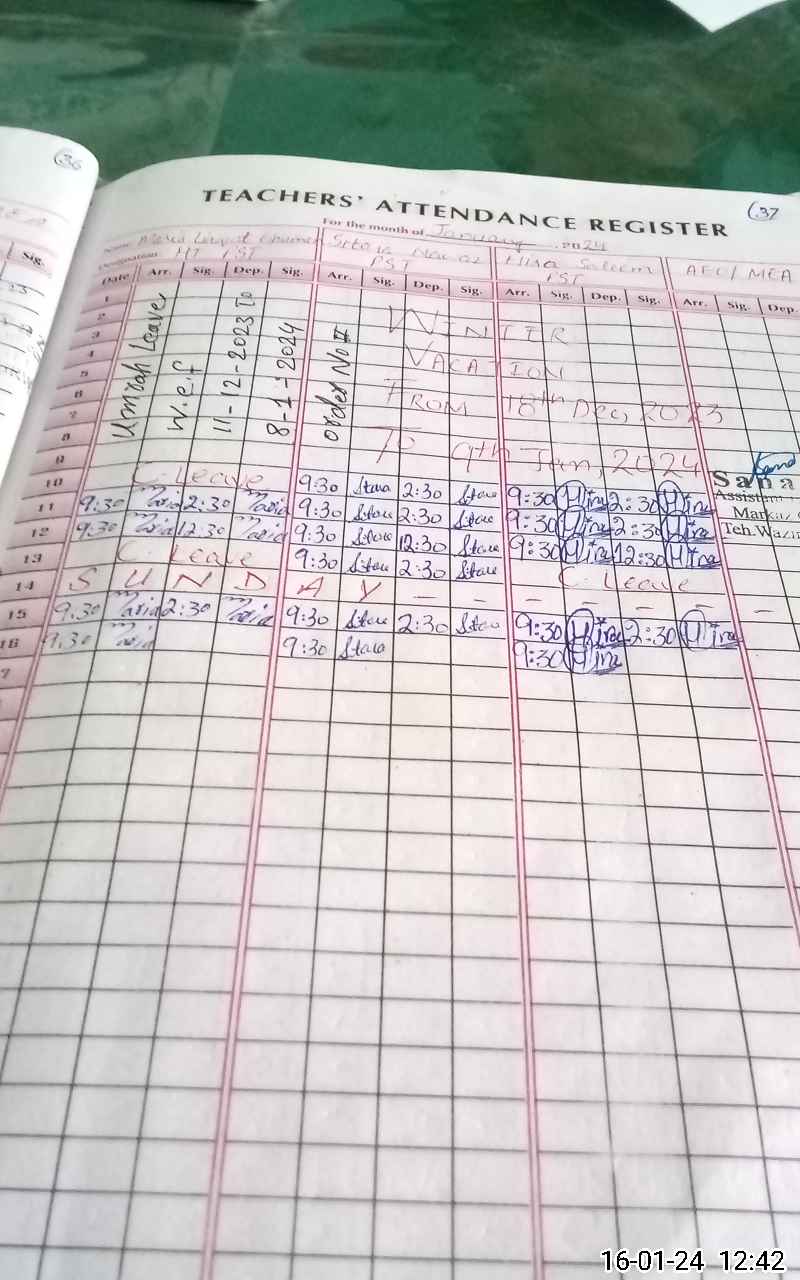 36
37
TEACHERS' ATTENDANCE REGISTER
For the month of January 2024
Name Maria Sitara Nawaz Hira Saleem AEO/MEA
Designation HT PST PST PST
Sig.
Date Arr. Sig. Dep. Sig. Arr. Sig. Dep. Sig. Arr. Sig. Dep. Sig. Arr. Sig. Dep.
1
2
3
4
5
6
7
8
9
Umrah Leave
w.e.f
11-12-2023 To
8-1-2024
order No #
WINTER
VACATION
FROM 18th Dec, 2023
To 9th Jan, 2024
Sana
Assistant
Markaz
Teh.Wazir
10 C. Leave 9:30 Stara 2:30 Stara 9:30 Hira 2:30 Hira
11 9:30 Maria 2:30 Maria 9:30 Stara 2:30 Stara 9:30 Hira 2:30 Hira
12 9:30 Maria 12:30 Maria 9:30 Stara 12:30 Stara 9:30 Hira 12:30 Hira
13 C. Leave 9:30 Stara 2:30 Stara C. Leave
14 S U N D A Y - - - - - - -
15 9:30 Maria 2:30 Maria 9:30 Stara 2:30 Stara 9:30 Hira 2:30 Hira
16 9:30 Maria 9:30 Stara 9:30 Hira
7
16-01-24 12:42